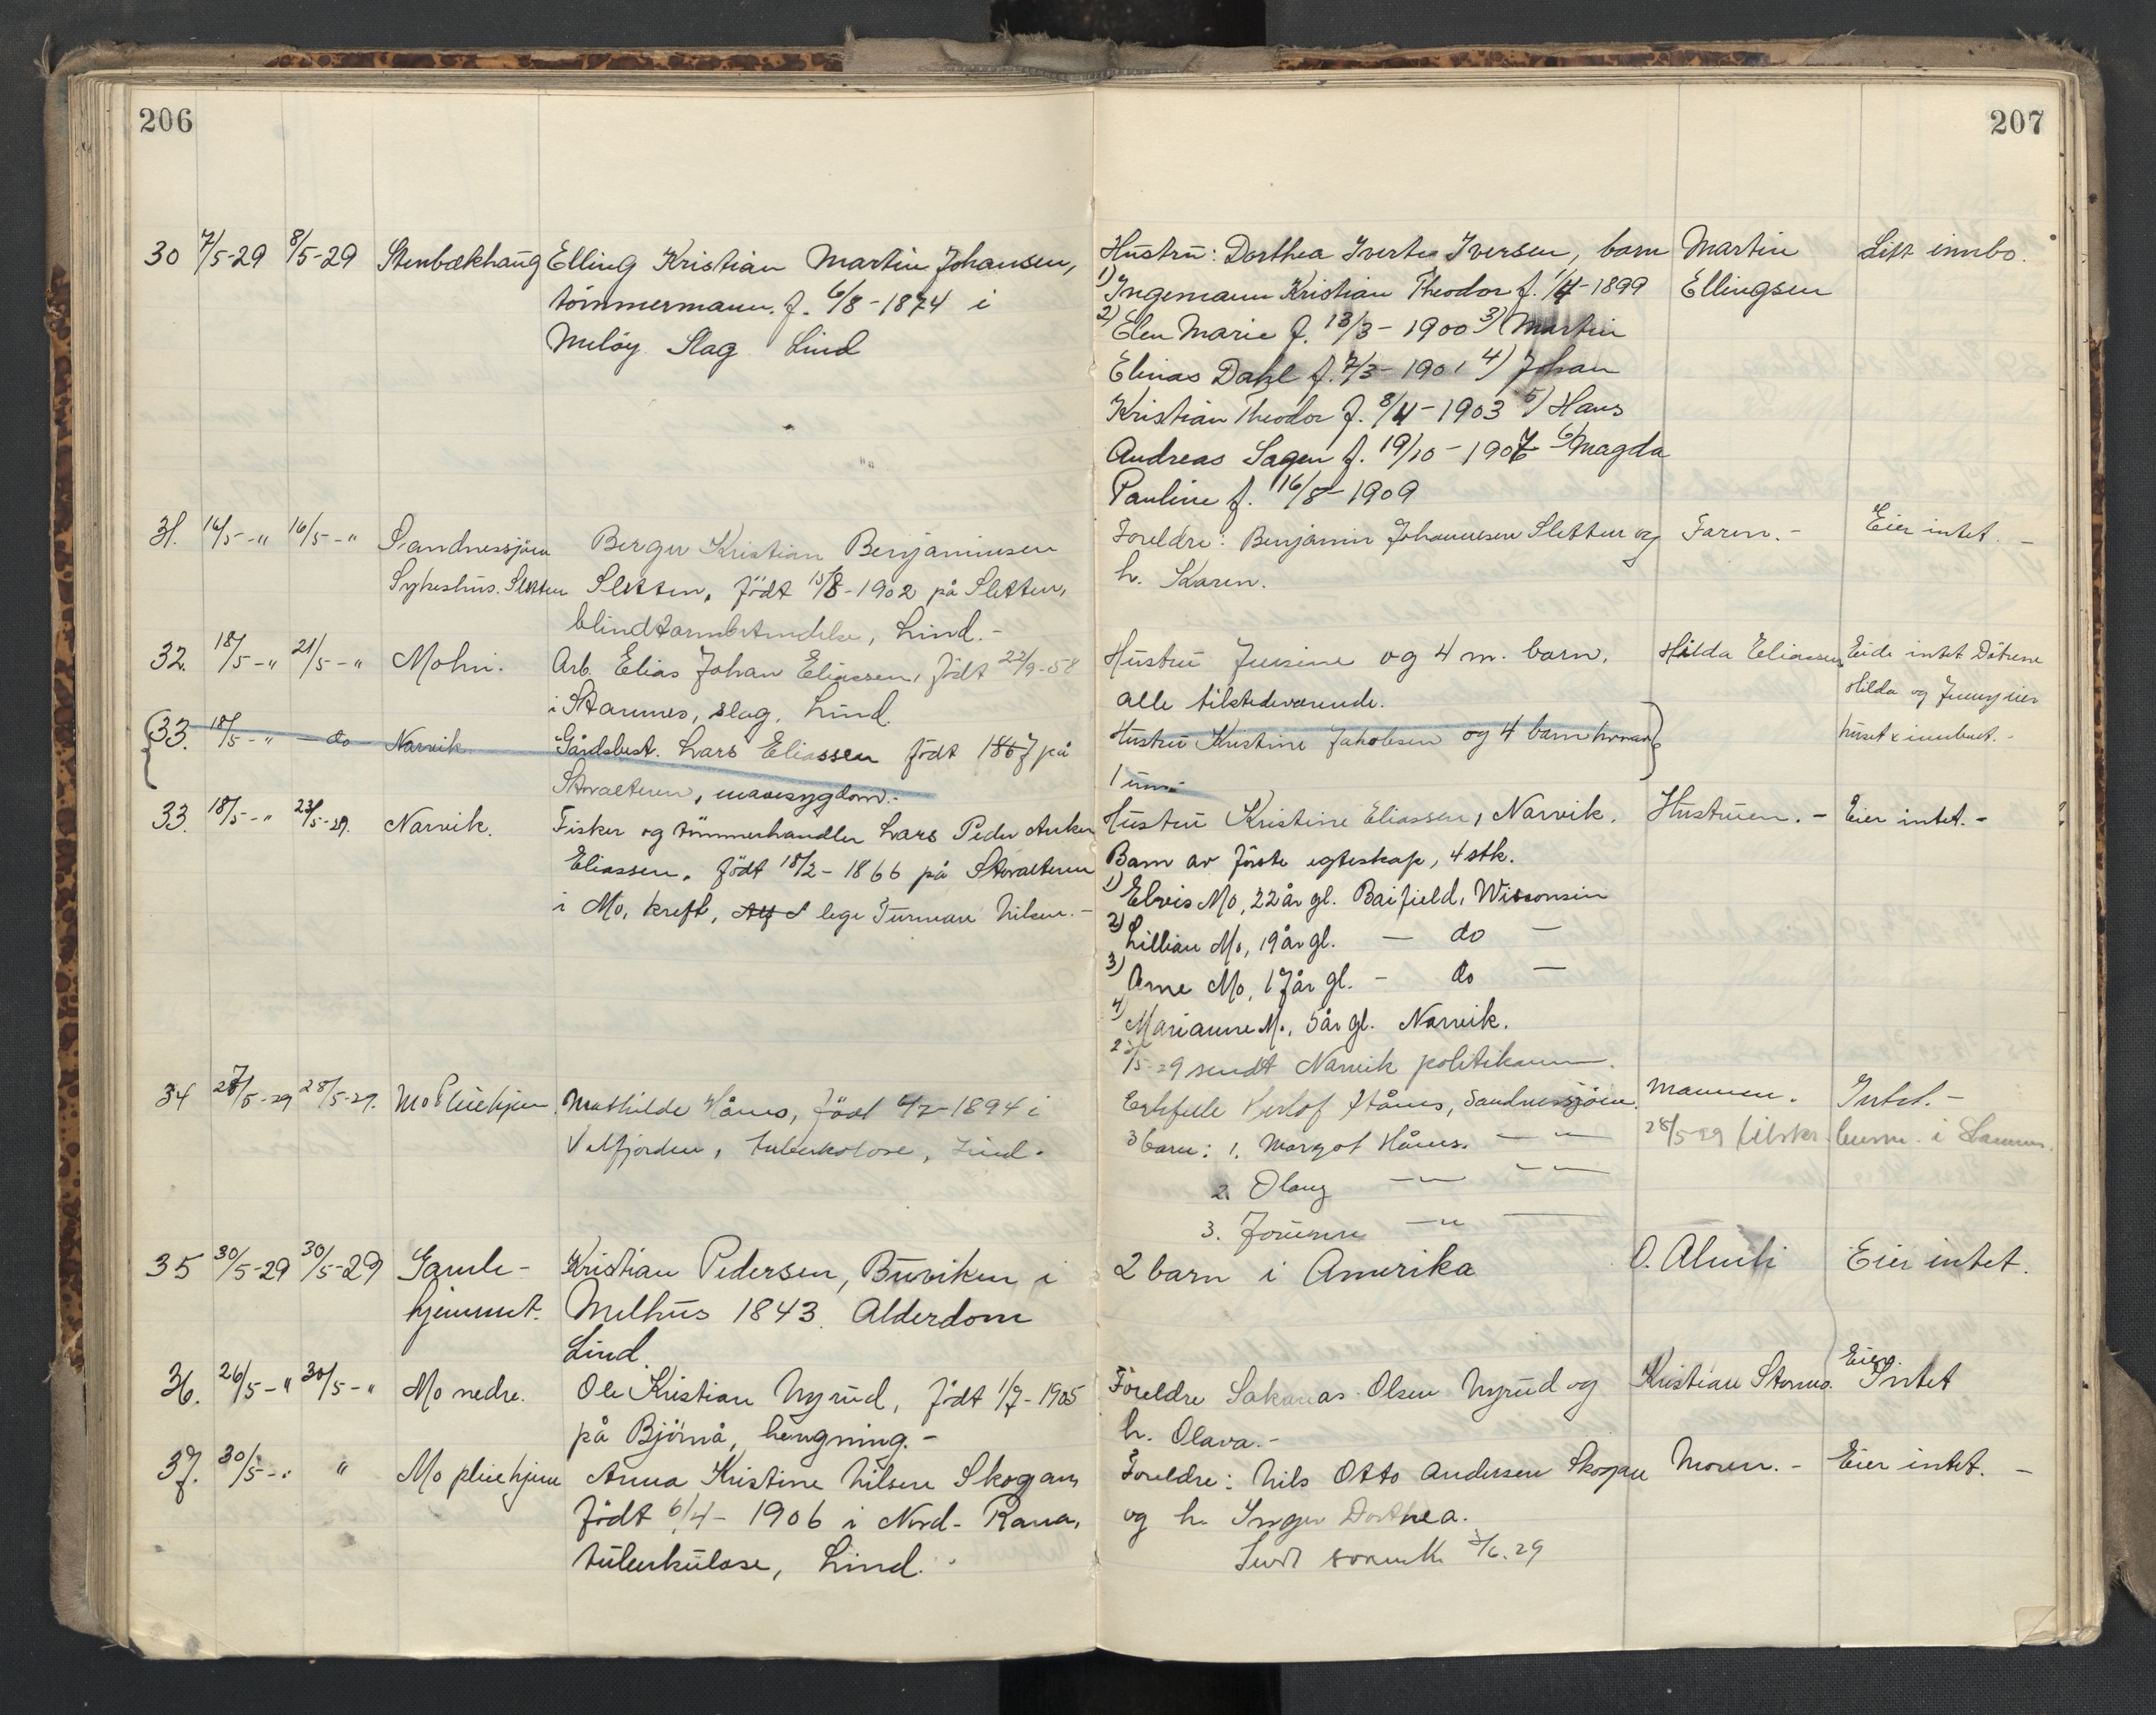 206
207
30 7/5-29 8/5-29 Stenbækhaug Elling Kristian Martin Johansen,
tömmermann. f. 6/8-1874 i
Melöy Slag Lind
Hustru: Dorthea Iverte Iversen, barn Martin Litt innbo.
1) Ingemann Kristian Theodor f. 1/4-1899 Ellingsen
2) Elen Marie f. 13/3-1900 3) Martin
Elinas Dahl f. 7/3-1901 4) Johan
Kristian Theodor f. 8/4-1903 5) Hans
Andreas Sagen f. 19/10-1907 6) Magda
Pauline f. 16/8-1909
31. 16/5-" 16/5-" Sandnessjöen Berger Kristian Benjaminsen
Sykeshus. Sletten Sletten, födt 15/8-1902 på Sletten,
blindtarmbetendelse, Lind.-
Foreldre: Benjamin Johannesen Sletten og Faren.- Eier intet.-
h. Karen.
32. 18/5-" 21/5-" Mohei. Arb. Elias Johan Eliassen, födt 22/9-58
i Stamnes, slag. Lind.
Hustru Jensine og 4 m. barn. Hilda Eliassen Eide intet Dötrene
alle tilstedeværende. Hilda og Jenny eier
huset & innbuet.-
33. 18/5-" -do- Narvik. Gårdsbest. Lars Eliassen födt 1867 på
Storalteren, mavesygdom.-
Hustru Kristine Jakobsen og 4 barn hvorav
1 um.
33. 18/5-" 23/5-29. Narvik. Fisker og tömmerhandler Lars Peder Anker
Eliassen. födt 18/2-1866 på Storalteren
i Mo, kreft, lege Turman Nilsen.-
Hustru Kristine Eliassen, Narvik. Hustruen.- Eier intet.-
Barn av förste egteskap, 4 stk.
1) Elvis Mo, 22 år gl. Baifield, Wisconsin
2) Lillian Mo, 19 år gl. - do -
3) Arne Mo, 17 år gl. - do -
4) Marianne M., 5 år gl. Narvik.
/5-29 sendt Narvik politikam
34 27/5-29 28/5-29. Mo Pleiehjem. Mathilde Hånes, född 4/2-1894 i
Velfjorden, tuberkolose, Lind.
Ektefelle Herlof Hånes, Sandnessjöen. Mannen. Intet.-
3 barn: 1. Margot Hånes. - " - 28/5-29 tilskr. lensm. i Stamnes.
2. Olaug - " -
3. Jorunn - " -
35 30/5-29 30/5-29 Gamle- Kristian Pedersen, Buviken i
hjemmet. Melhus 1843. Alderdom
Lind.
2 barn i Amerika O. Almli Eier intet.
36. 26/5-" 30/5-" Mo nedre. Ole Kristian Nyrud, födt 1/7-1905
på Björnå, hengning.-
Foreldre Sakarias Olsen Nyrud og Kristian Stormo. Eier Intet
h. Olava.-
37. 30/5-" " Mo pleiehjem Anna Kristine Nilsen Skogan,
födt 6/4-1906 i Nord-Rana,
tuberkulose, Lind.
Foreldre: Nils Otto Andersen Skogan Moren.- Eier intet.-
og h. Inger Dorthea.
Sendt sorensk. /6.29